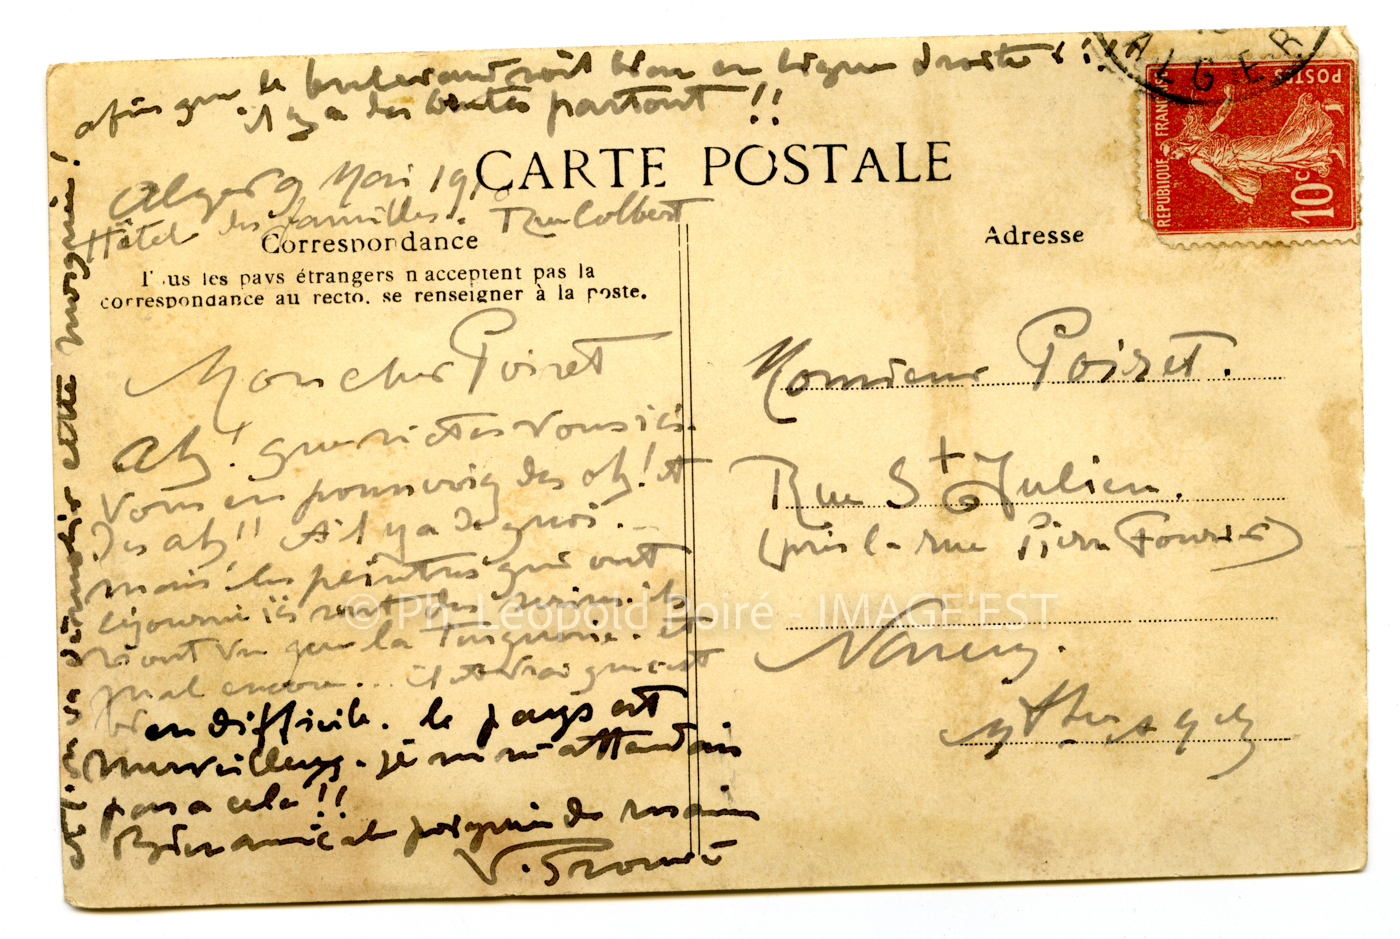 afin que le boulevard soit bien en ligne droite !!
il y a des brutes partout !!
ALGER
POSTES
REPUBLIQUE FRANÇAISE
10c
CARTE POSTALE
Alger 9 Mai 19
Hôtel des familles. Rue Colbert
Correspondance
Tous les pays étrangers n'acceptent pas la
correspondance au recto. se renseigner à la poste.
Adresse
Mon cher Poiret
Ah! que n'êtes vous ici.
Vous en pousseriez des ah! et
des ah!! et il y a de quoi.
mais les peintres qui ont
séjourné ici sont des ils
n'ont vu que la et
mal encore... il est vrai que c'est
bien difficile. le pays est
merveilleux. je ne m'attendais
pas à cela!!
Bien amicale poignée de mains
V. Prouvé
et on va démolir cette mosquée!
Monsieur Poiret.
Rue St Julien.
(près la rue Pierre Fourier)
Nancy.
© Ph. Léopold Poiré - IMAGE'EST